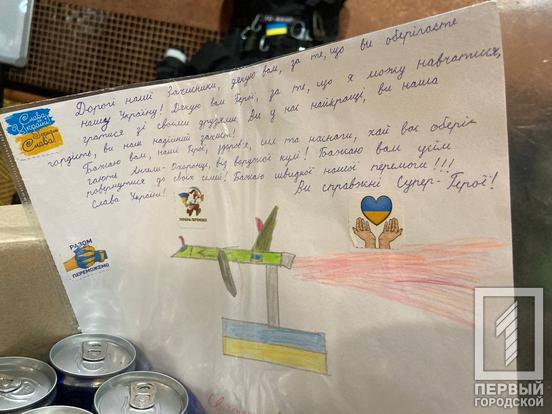 Дорогі наші Захисники, дякую вам, за те, що ви оберігаєте
нашу Україну! Дякую вам Герої, за те, що я можу навчатися,
гратися зі своїми друзями. Ви у нас найкращі, ви наша
гордість, ви наш надійний захист!
Бажаю вам, наші Герої, здоров'я, сил та наснаги, хай вас оберіга-
гають Ангели-Охоронці, від ворожої кулі! Бажаю вам усім
повернутися до своїх сімей! Бажаю швидкої нашої перемоги!!!
Слава Україні!
Ви справжні Супер-Герої!
Слава
Україні!
Героям
Слава!
РАЗОМ
ПЕРЕМОЖЕМО
ПЕРВЫЙ
ГОРОДСКОЙ